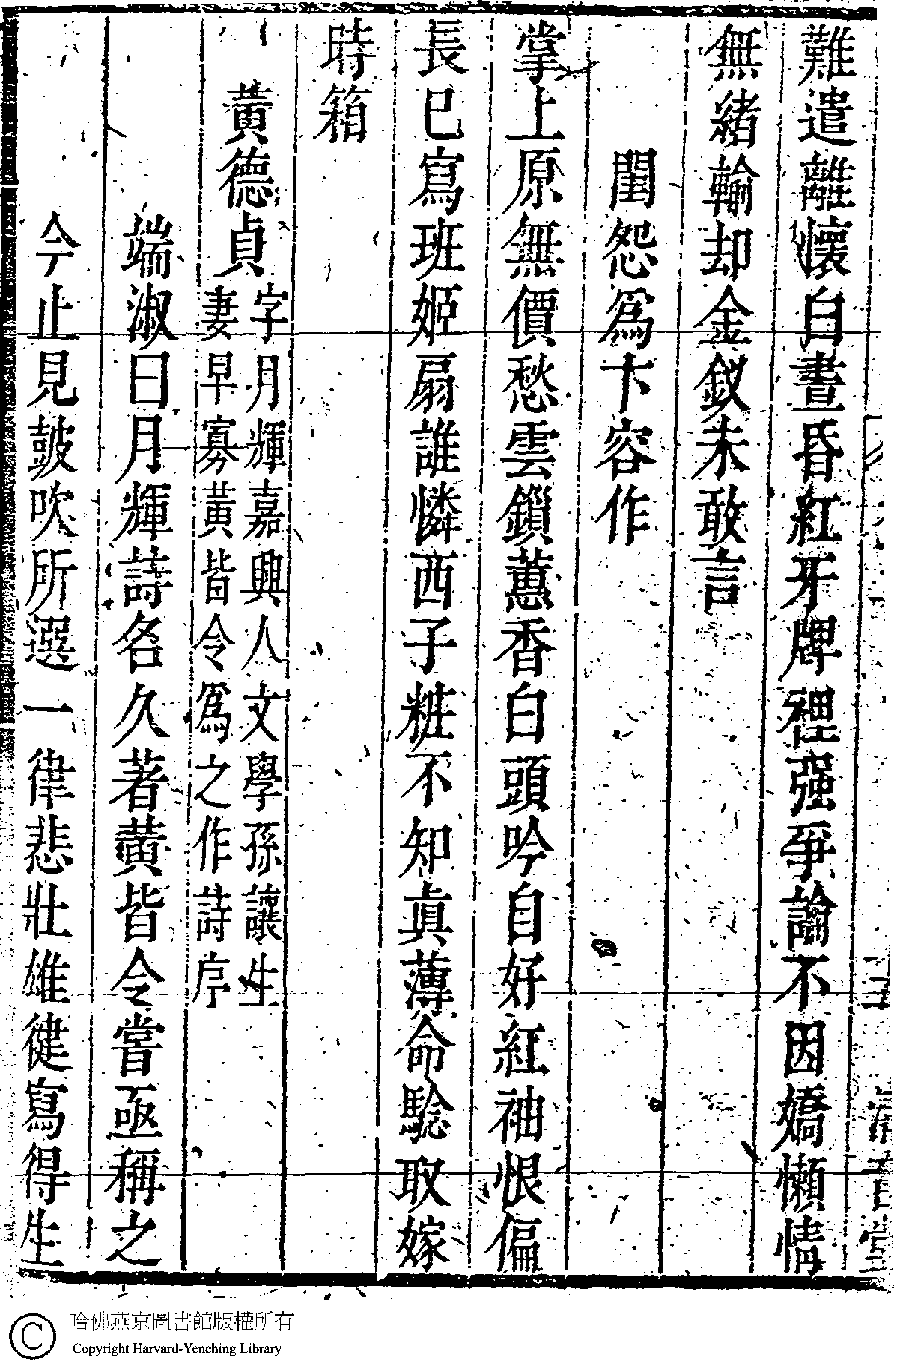 難遣離懷白晝昏紅牙牌裡强爭論不因嬌懶情
無緒輸却金釵未敢言
閨怨爲卞容作
掌上原無價愁雲鎖蕙香白頭吟自好紅袖恨偏
長已寫班姬扇誰憐西子粧不知眞薄命驗取嫁
時箱
黃德貞
字月輝嘉興人文學孫讓生
妻早寡黃皆令爲之作詩序
端淑曰月輝詩名久著黃皆令嘗亟稱之
今止見皷吹所選一律悲壯雄健寫得生
清音堂
哈佛燕京圖書館版權所有
Copyright Harvard-Yenching Library